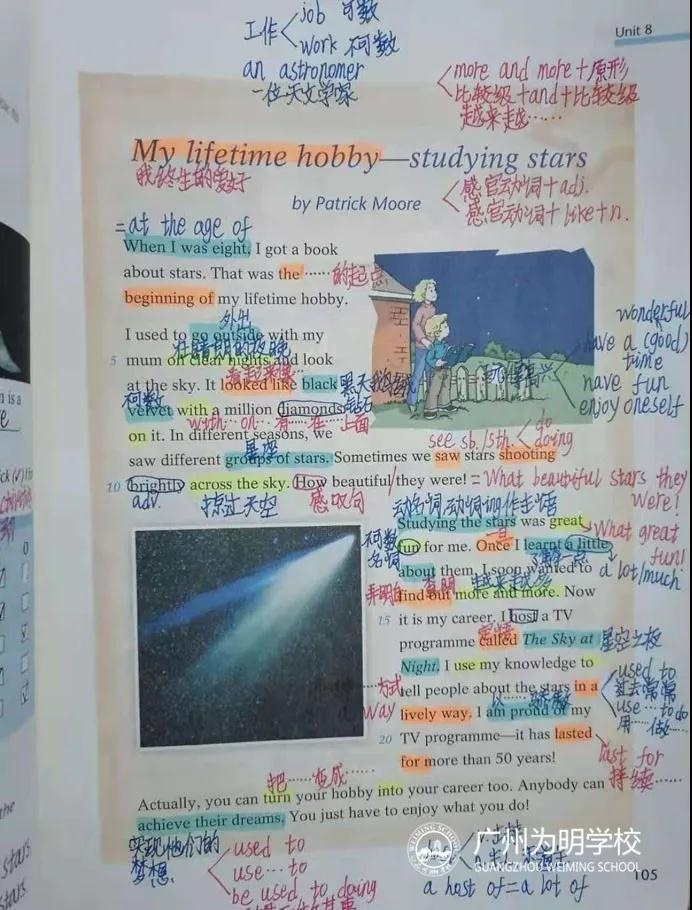 job 可数
工作
work 不可数
an astronomer
一位天文学家
Unit 8
more and more + 原形
比较级 + and + 比较级
越来越……
My lifetime hobby—studying stars
我终生的爱好
by Patrick Moore
感官动词 + adj.
感官动词 + like + n.
= at the age of
When I was eight, I got a book
about stars. That was the
……的起点
beginning of my lifetime hobby.
外出
I used to go outside with my
在晴朗的夜晚
5 mum on clear nights and look
看起来像
at the sky. It looked like black
不可数
velvet with a million diamonds
钻石
with…on…有…在…上面
on it. In different seasons, we
星座
saw different groups of stars. Sometimes we saw stars shooting
see sb./sth. do
doing
10 brightly across the sky. How beautiful they were!
= What beautiful stars they were!
adv.
掠过天空
感叹句
wonderful
have a (good) time
have fun
enjoy oneself
玩得高兴
动名词
Studying the stars was great
What great fun!
不可数名词
一旦
fun for me. Once I learnt a little
a lot/much
about them, I soon wanted to
弄明白
越来越多
find out more and more. Now
15 it is my career. I host a TV
programme called The Sky at
星空之夜
Night. I use my knowledge to
tell people about the stars in a
way
used to
过去常常
use…to do
用…做…
lively way. I am proud of my
以……骄傲
20 TV programme—it has lasted
for more than 50 years!
last for
持续……
把……变成……
Actually, you can turn your hobby into your career too. Anybody can
achieve their dreams. You just have to enjoy what you do!
实现他们的
梦想
used to
use…to
be used to doing
a host of = a lot of
WEIMING SCHOOL
广州为明学校
GUANGZHOU WEIMING SCHOOL
105